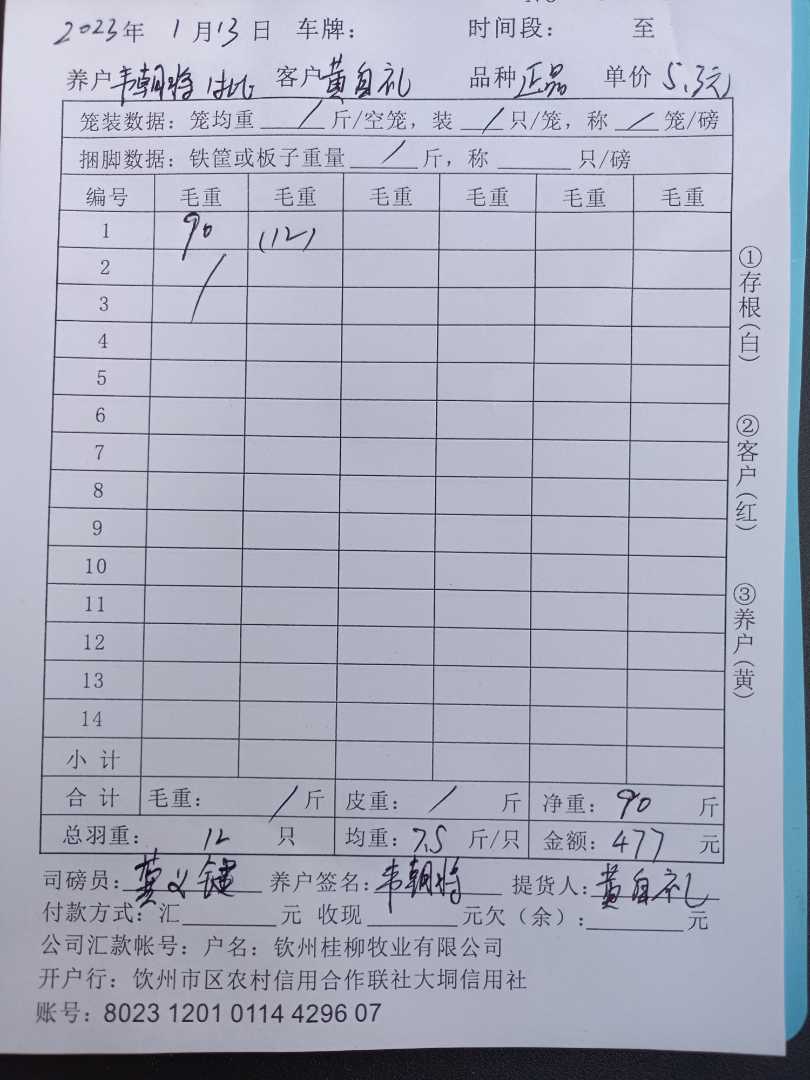 2023年 1月13日 车牌： 时间段： 至
养户 韦朝将 客户 黄自礼 品种 正品 单价 5.3元
笼装数据：笼均重 / 斤/空笼，装 / 只/笼，称 / 笼/磅
捆脚数据：铁筐或板子重量 / 斤，称 只/磅
编号 毛重 毛重 毛重 毛重 毛重 毛重
1 90 (12)
2 /
3
4
5
6
7
8
9
10
11
12
13
14
小计
合计 毛重： / 斤 皮重： / 斤 净重：90 斤
总羽重： 12 只 均重：7.5 斤/只 金额：477 元
司磅员： 养户签名：韦朝将 提货人：黄自礼
付款方式：汇 元 收现 元欠（余）： 元
公司汇款帐号：户名：钦州桂柳牧业有限公司
开户行：饮州市区农村信用合作联社大垌信用社
账号：8023 1201 0114 4296 07
①存根（白）
②客户（红）
③养户（黄）